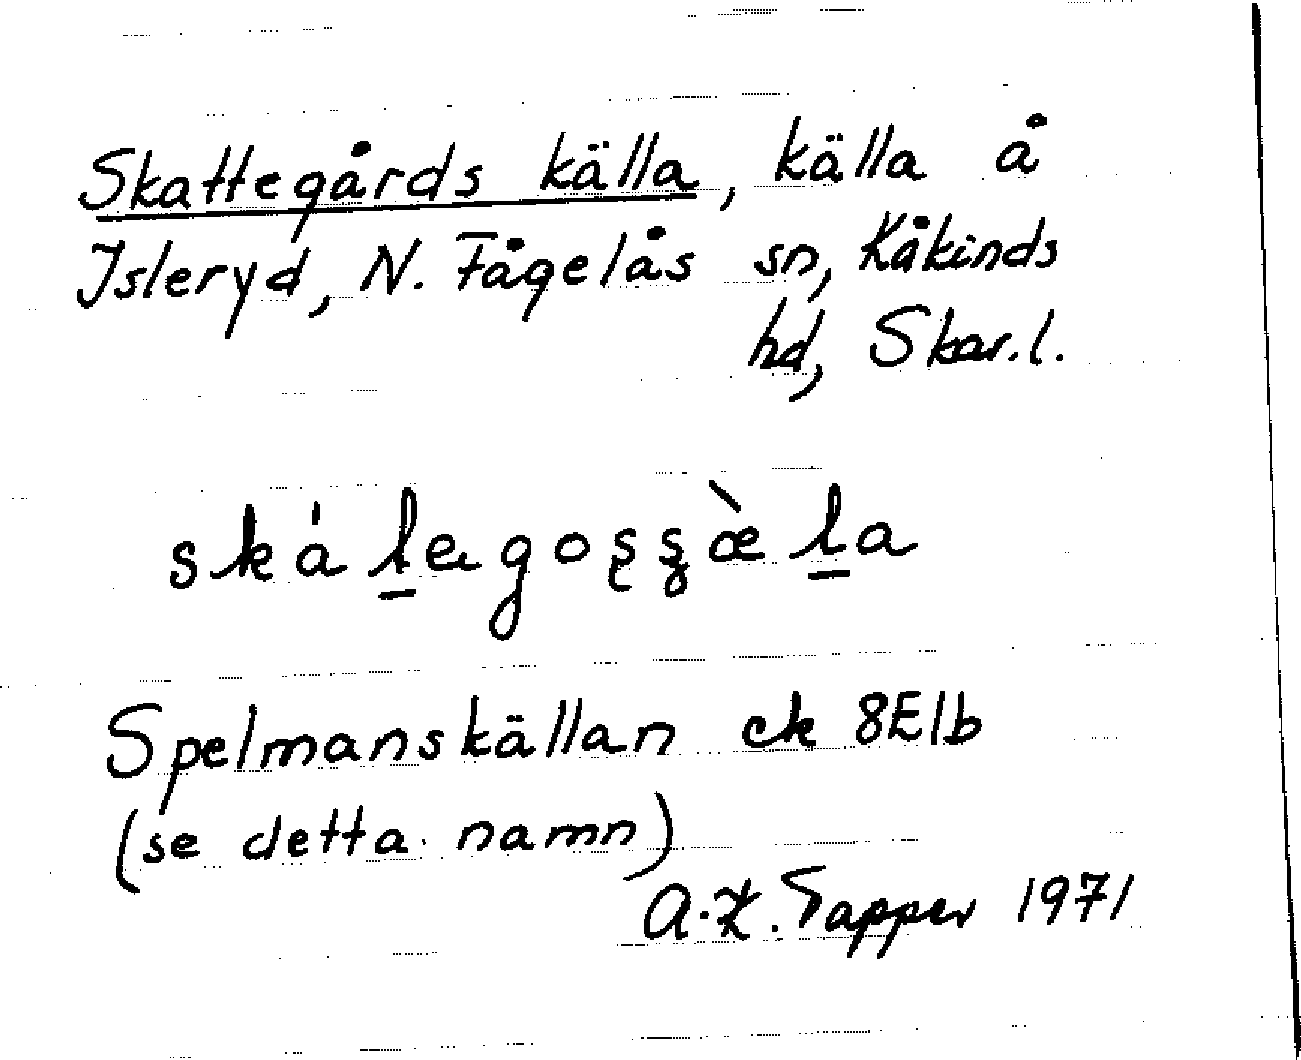 Skattegårds källa, källa å
Isleryd, N. Fågelås sn, Kåkinds
hd, Skar.l.
Spelmanskällan ek 8E1b
(se detta namn)
A.-K. Tapper 1971